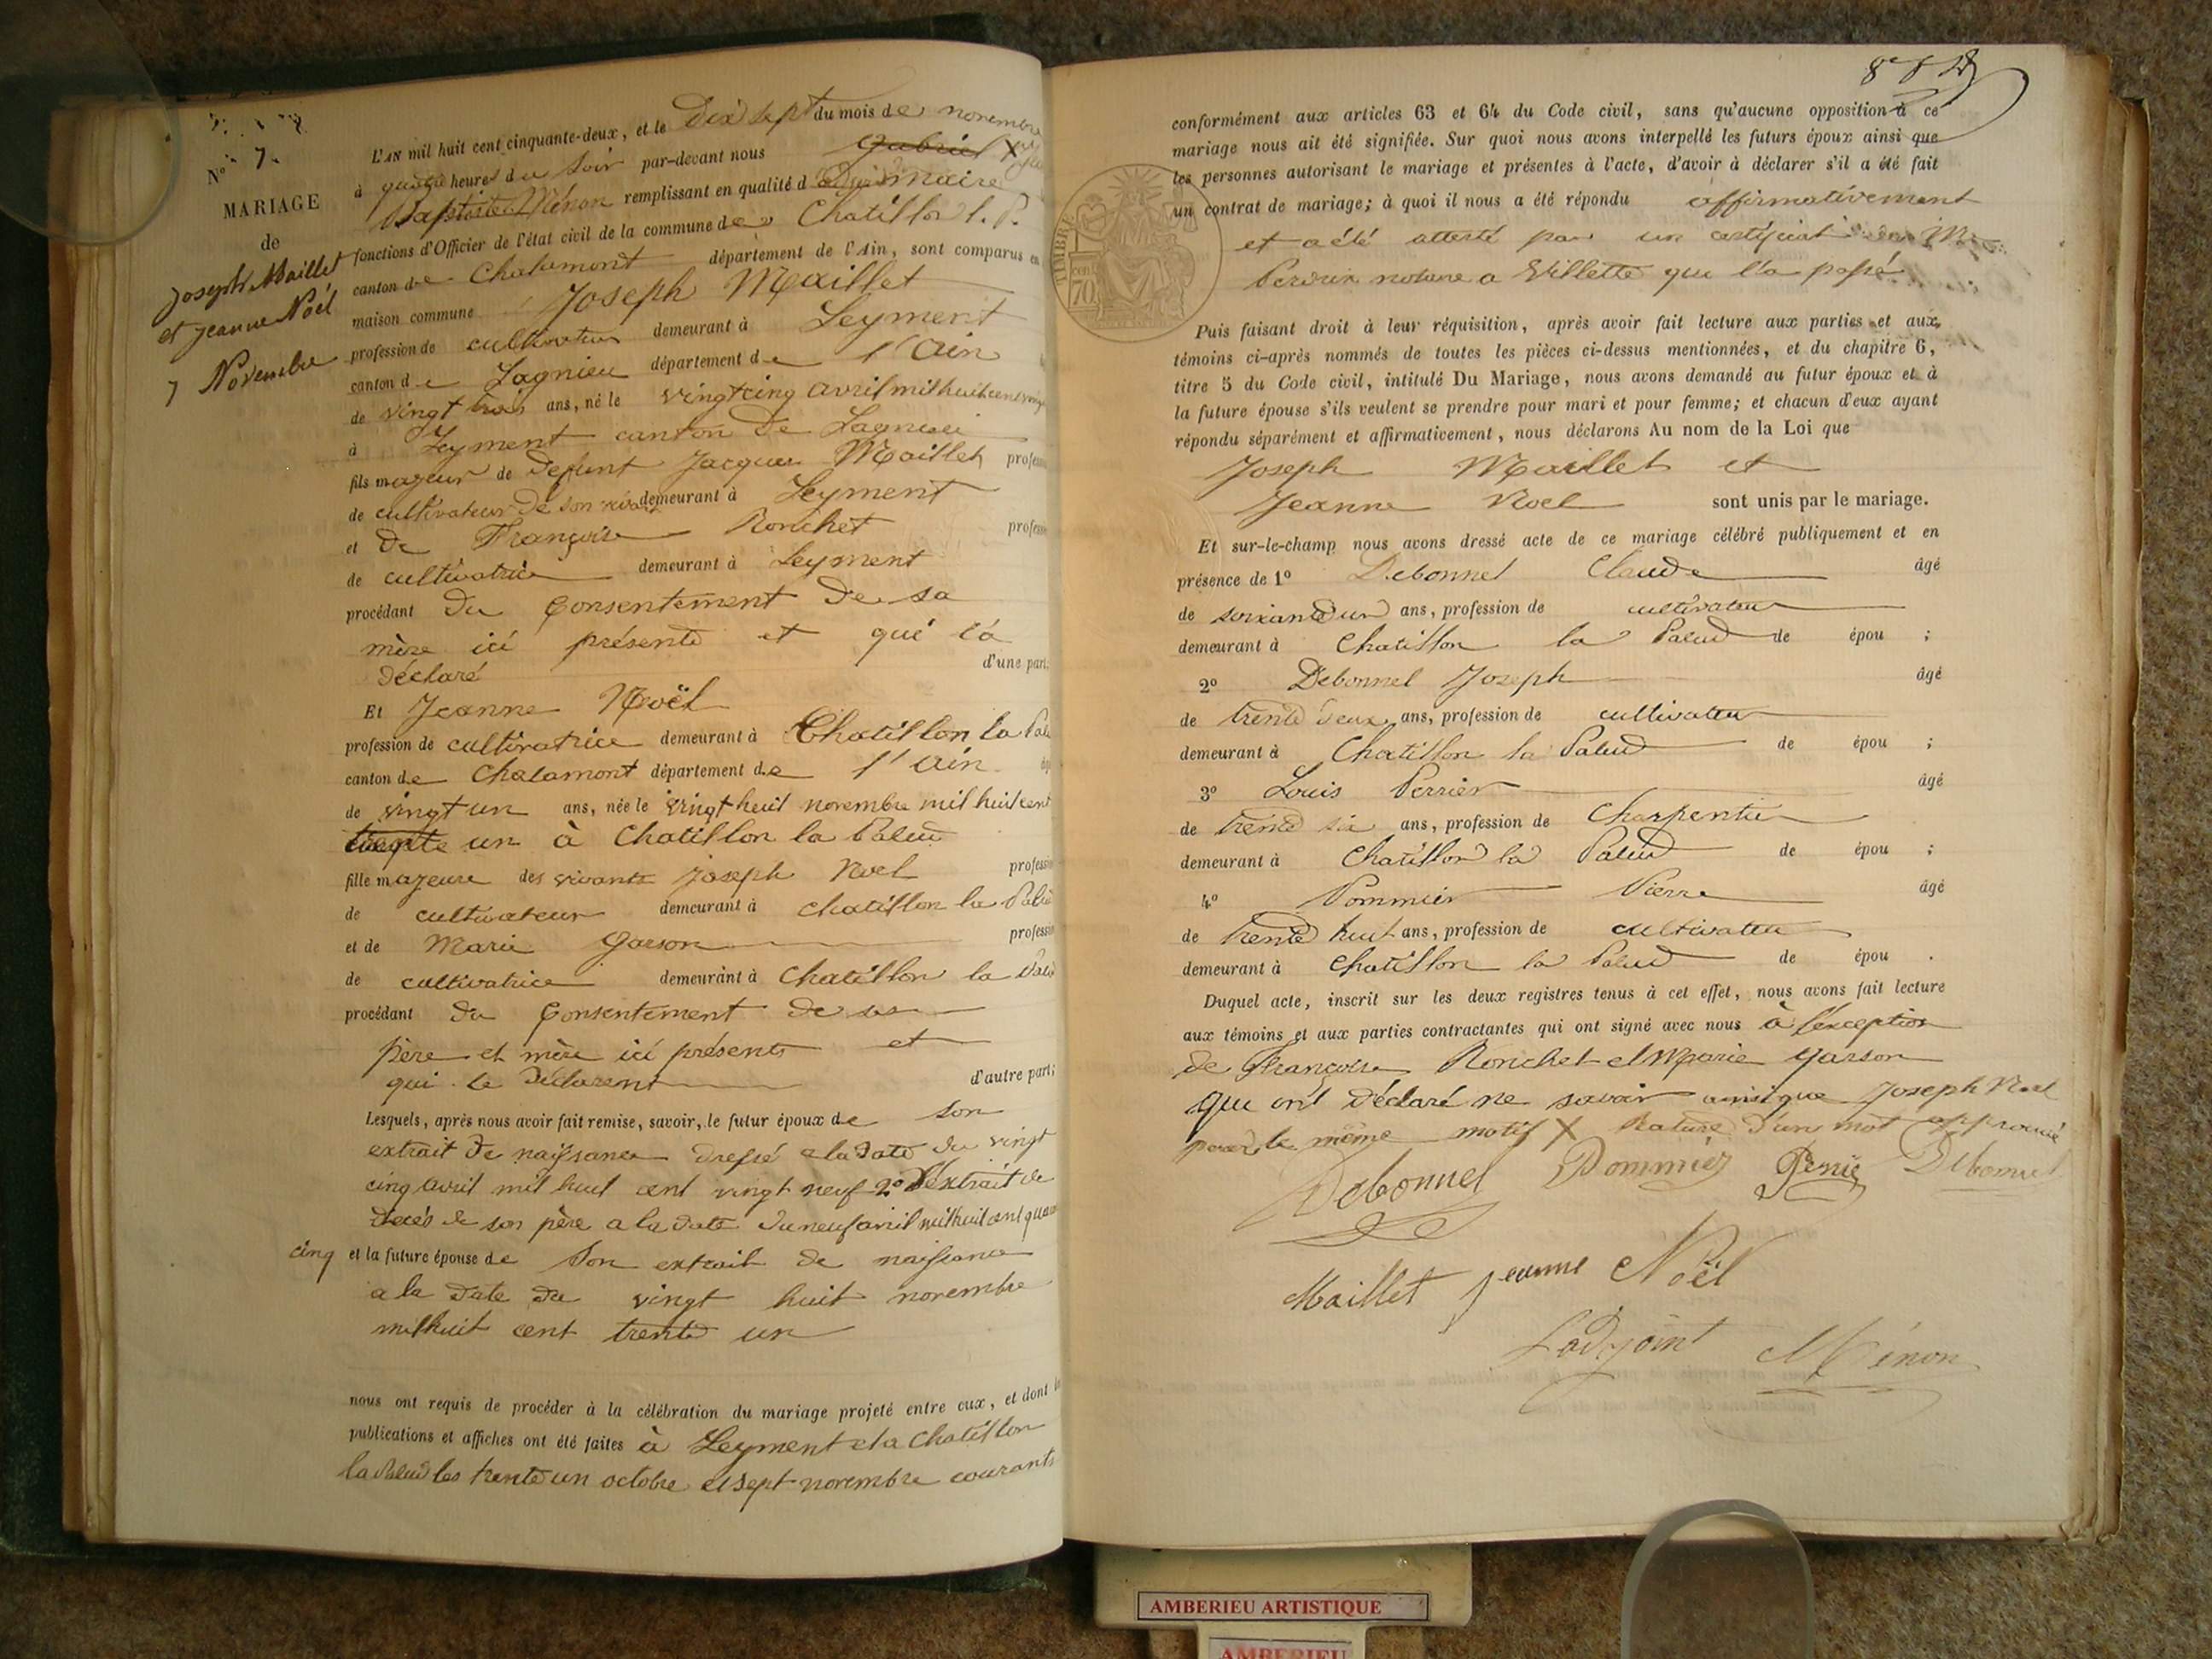 N° 7.
MARIAGE
de
Joseph Maillet
et Jeanne Noël
7 Novembre
L'AN mil huit cent cinquante-deux, et le Dix sept du mois de novembre
à quatre heures du soir par-devant nous Gabriel X
Baptiste Ménon remplissant en qualité d maire
fonctions d'Officier de l'état civil de la commune de Chatillon l. P.
canton de Chalamont département de l'Ain, sont comparus en
maison commune Joseph Maillet
profession de cultivateur demeurant à Leyment
canton de Lagnieu département de l'Ain
de vingt trois ans, né le vingt cinq avril mil huit cent vingt
à Leyment canton de Lagnieu
fils majeur de defunt Jacques Maillet profession
de cultivateur de son vivant demeurant à Leyment
et de Françoise Ronchet profession
de cultivatrice demeurant à Leyment
procédant du consentement de sa
mère ici présente et qui l'a
déclaré d'une part;
Et Jeanne Noël
profession de cultivatrice demeurant à Chatillon la Palu
canton de Chalamont département de l'Ain
de vingt un ans, née le vingt huit novembre mil huit cent
trente un à Chatillon la Palud
fille majeure des vivants Joseph Noel profession
de cultivateur demeurant à Chatillon la Palud
et de Marie Garson profession
de cultivatrice demeurant à Chatillon la Palud
procédant du consentement de ses
père et mère ici présents et
qui le déclarent d'autre part;
Lesquels, après nous avoir fait remise, savoir, le futur époux de son
extrait de naissance dressé a la date du vingt
cinq avril mil huit cent vingt neuf 2° l'extrait de
décès de son père a la date du neuf avril mil huit cent quarante
cinq et la future épouse de son extrait de naissance
a la date du vingt huit novembre
mil huit cent trente un
nous ont requis de procéder à la célébration du mariage projeté entre eux, et dont les
publications et affiches ont été faites à Leyment et a Chatillon
la Palud les trente un octobre et sept novembre courants
conformément aux articles 63 et 64 du Code civil, sans qu'aucune opposition à ce
mariage nous ait été signifiée. Sur quoi nous avons interpellé les futurs époux ainsi que
les personnes autorisant le mariage et présentes à l'acte, d'avoir à déclarer s'il a été fait
un contrat de mariage; à quoi il nous a été répondu affirmativement
et a été attesté par un certificat de Me
Perdrix notaire a Villette qui l'a passé
TIMBRE
cent
70
Puis faisant droit à leur réquisition, après avoir fait lecture aux parties et aux
témoins ci-après nommés de toutes les pièces ci-dessus mentionnées, et du chapitre 6,
titre 5 du Code civil, intitulé Du Mariage, nous avons demandé au futur époux et à
la future épouse s'ils veulent se prendre pour mari et pour femme; et chacun d'eux ayant
répondu séparément et affirmativement, nous déclarons Au nom de la Loi que
Joseph Maillet et
Jeanne Noel sont unis par le mariage.
Et sur-le-champ nous avons dressé acte de ce mariage célébré publiquement et en
présence de 1° Debonnel Claude âgé
de soixante un ans, profession de cultivateur
demeurant à Chatillon la Palud de épou ;
2° Debonnel Joseph âgé
de trente deux ans, profession de cultivateur
demeurant à Chatillon la Palud de épou ;
3° Louis Perrier âgé
de trente six ans, profession de Charpentier
demeurant à Chatillon la Palud de épou ;
4° Pommier Pierre âgé
de trente huit ans, profession de cultivateur
demeurant à Chatillon la Palud de épou .
Duquel acte, inscrit sur les deux registres tenus à cet effet, nous avons fait lecture
aux témoins et aux parties contractantes qui ont signé avec nous à l'exception
de Françoise Ronchet et Marie Garson
qui ont déclaré ne savoir ainsi que Joseph Noel
pour le même motif X Rature d'un mot approuvé
Debonnel Pommier Perrier Debonnel
Maillet Jeanne Noël
L'adjoint Ménon
AMBERIEU ARTISTIQUE
AMBERIEU